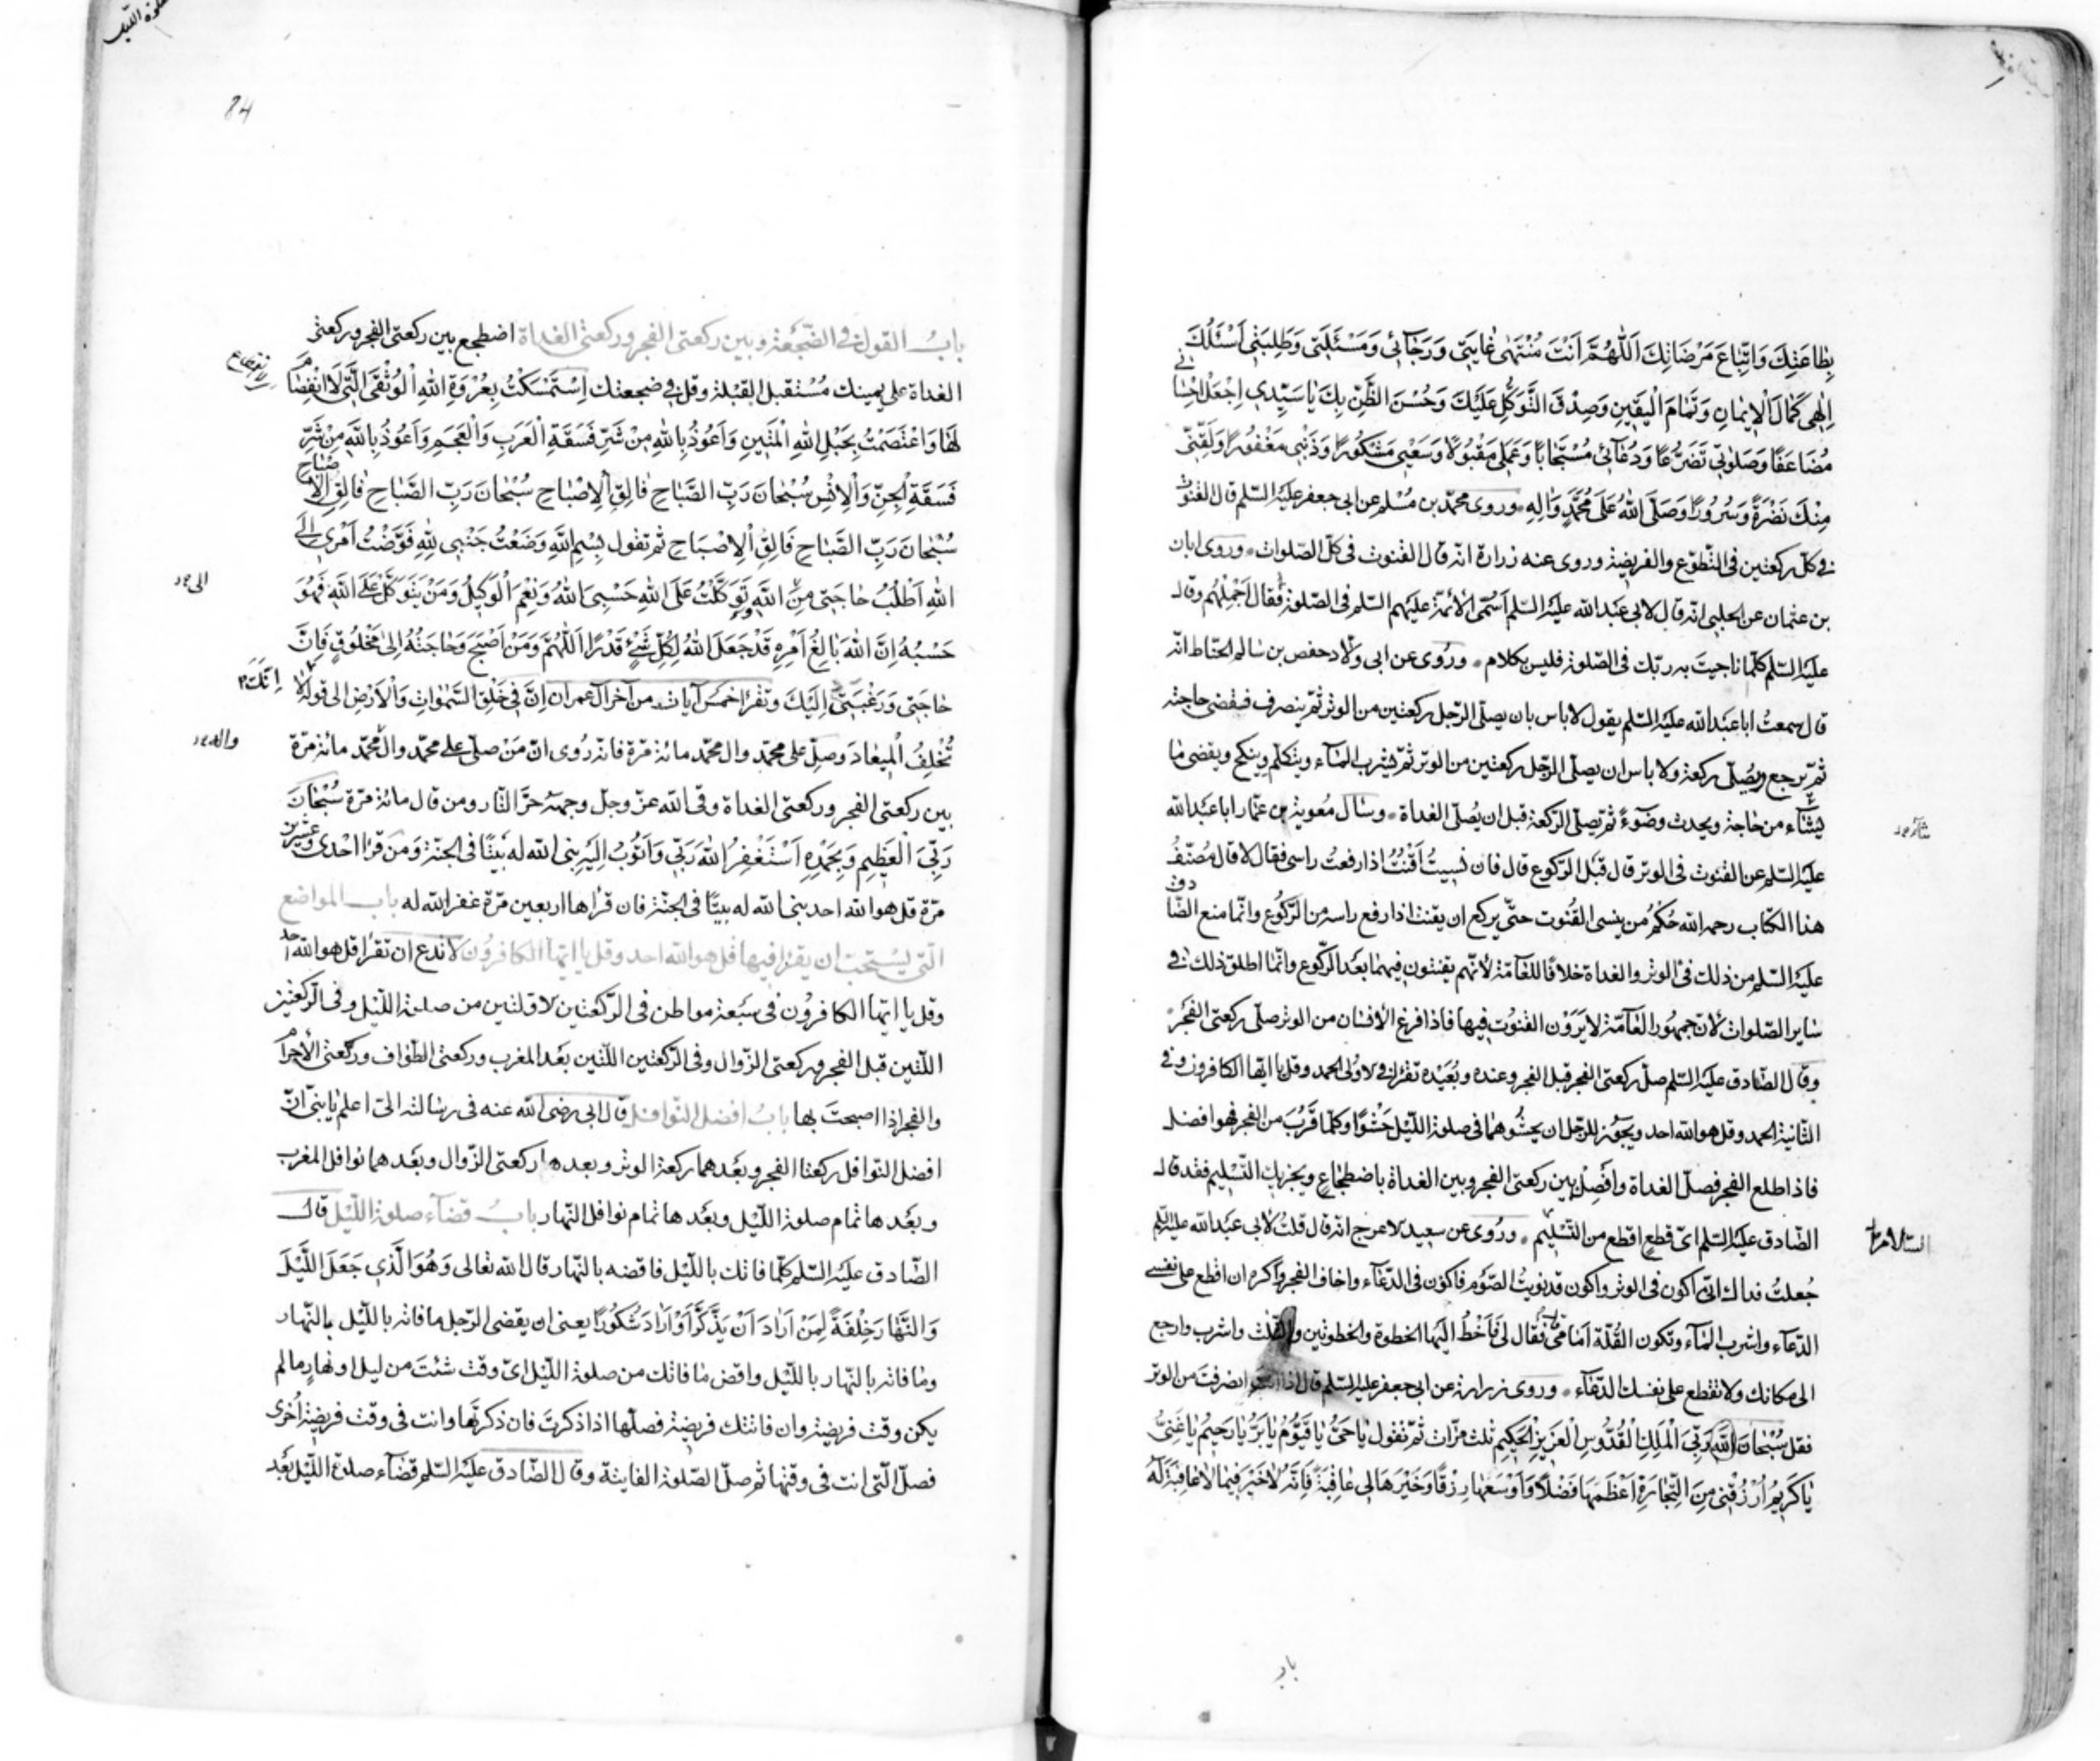 بِطَاعَتِكَ وَاتِّبَاعَ مَرْضَاتِكَ اَللّٰهُمَّ اَنْتَ مُنْتَهٰى غَايَتِي وَرَجَآئِي وَمَسْئَلَتِي وَطَلِبَتِي اَسْئَلُكَ
اِلٰهِي كَمَالَ الْاِيمَانِ وَتَمَامَ الْيَقِينِ وَصِدْقَ التَّوَكُّلِ عَلَيْكَ وَحُسْنَ الظَّنِّ بِكَ يَا سَيِّدِي اِجْعَلْ اِحْسَانِي
مُضَاعَفًا وَصَلوٰتِي تَضَرُّعًا وَدُعَآئِي مُسْتَجَابًا وَعَمَلِي مَقْبُولًا وَسَعْيِي مَشْكُورًا وَذَنْبِي مَغْفُورًا وَلَقِّنِي
مِنْكَ نَضْرَةً وَسُرُورًا وَصَلَّى اللّٰهُ عَلٰى مُحَمَّدٍ وَاٰلِهِ وروى محمّد بن مُسْلِم عن ابى جعفر عليه السّلم قال القنوت
فى كلّ ركعتين فى التّطوّع والفريضة وروى عنه زرارة انّه قال القنوت فى كلّ الصّلوات وروى ابان
بن عثمان عن الحلبى انّه قال لابى عَبْد الله عليه السّلم اُسَمّى الأئمّة عليهم السّلم فى الصّلوة فقال اَجْمِلْهُم وقال
عليه السّلم كلّما ناجيتَ به ربّك فى الصّلوة فليس بكلام وروى عن ابى ولّاد حفص بن سالم الحنّاط انّه
قال سمعتُ ابا عبد الله عليه السّلم يقول لا باس بان يصلّى الرّجل ركعتين من الوتر ثمّ ينصرف فيقضى حاجته
ثمّ يرجع ويُصلّى ركعة ولا باس ان يصلّى الرّجل ركعتين من الوتر ثمّ يشرب المآء ويتكلّم وينكح ويقضى ما
يشآء من حاجة ويحدث وضوءً ثمّ يصلّى الرّكعة قبل ان يُصلّى الغداة وسال مُعوية بن عمّار ابا عبد الله
عليه السّلم عن القنوت فى الوتر قال قبل الرّكوع قال فان نسيتُ اَقْنُتُ اذا رفعتُ راسى فقال لا قال مُصنّفُ
هذا الكتاب رحمه الله حُكمُ من ينسى القُنُوت حتّى يركع ان يقنت اذا رفع راسه من الرّكُوع وانّما منع الصّادق
عليه السّلم من ذلك فى الوتر والغداة خلافًا للعآمّة لأنّهم يقنتون فيهما بَعْد الرّكُوع وانّما اطلق ذلك فى
ساير الصّلوات لأنّ جمهُور العَآمّة لا يَرَوْن القنُوت فيها فاذا فرغ الأنسان من الوتر صلّى ركعتى الفَجْر
وقال الصّادق عليه السّلم صلّ ركعتى الفجر قبل الفجر وعنده وبُعَيْده تقرأ فى الأولى الحمد وقل يا ايّها الكافرون وفى
الثّانية الحمد وقل هو الله احد ويجوز للرّجل ان يحشوهما فى صلوة اللّيل حَشْوًا وكلّما قَرُبَ من الفجر فهو افضل
فاذا طلع الفجر فصلّ الغداة وافْصِلْ بين ركعتى الفجر وبين الغداة باضطجاع ويجزيك التّسليم فقد قال
الصّادق عليه السّلم اىّ قطع اقطع من التّسْليم وروى عن سعيد الاعرج انّه قال قلتُ لابى عبد الله عليه السّلم
جُعلتُ فداك انّى اكون فى الوتر واكون قد نويتُ الصّوم فاكون فى الدّعآء واخاف الفجر واكره ان اقطع على نفسى
الدّعآء واشرب المآء وتكون القُلّة امامى فقال لى فَاَخْطُ اليها الخطوة والخطوتين والثلث واشرب وارجع
الى مكانك ولا تقطع على نفسك الدّعآء وروى زرارة عن ابى جعفر عليه السّلم قال اذا انصرفت من الوتر
فقل سُبْحَانَ اللّٰهِ رَبِّيَ الْمَلِكِ الْقُدُّوسِ الْعَزِيزِ الْحَكِيمِ ثلث مرّات ثمّ تقول يَا حَيُّ يَا قَيُّومُ يَا بَرُّ يَا رَحِيمُ يَا غَنِيُّ
يَا كَرِيمُ اُرْزُقْنِي مِنَ التِّجَارَةِ اَعْظَمَهَا فَضْلًا وَاَوْسَعَهَا رِزْقًا وَخَيْرَهَا لِي عَاقِبَةً فَاِنَّهُ لَا خَيْرَ فِيمَا لَا عَاقِبَةَ لَهُ
باب
84
بابُ القول فى الضّجْعَة وبين ركعتى الفجر وركعتى الغداة اضطجع بين ركعتى الفجر وركعتى
الغداة على يمينك مُسْتقبل القبْلة وقل فى ضجعتك اِسْتَمْسَكْتُ بِعُرْوَةِ اللّٰهِ الْوُثْقَى الَّتِي لَا انْفِصَامَ
لَهَا وَاعْتَصَمْتُ بِحَبْلِ اللّٰهِ الْمَتِينِ وَاَعُوذُ بِاللّٰهِ مِنْ شَرِّ فَسَقَةِ الْعَرَبِ وَالْعَجَمِ وَاَعُوذُ بِاللّٰهِ مِنْ شَرِّ
فَسَقَةِ الْجِنِّ وَالْاِنْسِ سُبْحَانَ رَبِّ الصَّبَاحِ فَالِقِ الْاِصْبَاحِ سُبْحَانَ رَبِّ الصَّبَاحِ فَالِقِ الْاِصْبَاحِ
سُبْحَانَ رَبِّ الصَّبَاحِ فَالِقِ الْاِصْبَاحِ ثم تقول بِسْمِ اللّٰهِ وَضَعْتُ جَنْبِي لِلّٰهِ فَوَّضْتُ اَمْرِي اِلَى
اللّٰهِ اَطْلُبُ حَاجَتِي مِنَ اللّٰهِ تَوَكَّلْتُ عَلَى اللّٰهِ حَسْبِيَ اللّٰهُ وَنِعْمَ الْوَكِيلُ وَمَنْ يَتَوَكَّلْ عَلَى اللّٰهِ فَهُوَ
حَسْبُهُ اِنَّ اللّٰهَ بَالِغُ اَمْرِهِ قَدْ جَعَلَ اللّٰهُ لِكُلِّ شَيْءٍ قَدْرًا اَللّٰهُمَّ وَمَنْ اَصْبَحَ وَحَاجَتُهُ اِلٰى مَخْلُوقٍ فَاِنَّ
حَاجَتِي وَرَغْبَتِي اِلَيْكَ وتقرأ خمس آيات من آخر آل عمران اِنَّ فِي خَلْقِ السَّمٰوَاتِ وَالْاَرْضِ الى قوله لَا
اِنَّكَ
تُخْلِفُ الْمِيعَادَ وصلّ على محمّد وال محمّد مائة مرّة فانّه رُوى انّ مَنْ صلّى على محمّد وال محمّد مائة مرّة
بين ركعتى الفجر وركعتى الغداة وقى الله عزّ وجلّ وجهه حَرّ النّار ومن قال مائة مرّة سُبْحَانَ
رَبِّيَ الْعَظِيمِ وَبِحَمْدِهِ اَسْتَغْفِرُ اللّٰهَ رَبِّي وَاَتُوبُ اِلَيْهِ بنى الله له بَيتًا فى الجنّة وَمَن قرأ احْدى وعشرين
مرّة قل هو الله احد بنى الله له بيتًا فى الجنّة فان قرأها اربعين مرّة غفر الله له باب المواضع
الّتى يُسْتحبّ ان يقرأ فيها قل هو الله احد وقل يا ايّها الكافرُون لا تدع ان تقرأ قل هو الله احد
وقل يا ايّها الكافرُون فى سَبْعة مواطن فى الرّكعتين الاوّلتين من صلوة اللّيل وفى الرّكعتين
اللّتين قبل الفجر وركعتى الزّوال وفى الرّكعتين اللّتين بَعْد المغرب وركعتى الطّواف وركعتى الأحرام
والفجر اذا اصبحتَ بها بابُ افضل النّوافل قال ابى رضى الله عنه فى رسالته الىّ اعلم يا بنىّ انّ
افضل النّوافل ركعتا الفجر وبعْدهما ركعة الوتر وبعدها ركعتى الزّوال وبعْدهما نوافل المغرب
وبعْدها تمام صلوة اللّيل وبعْدها تمام نوافل النّهار بابُ قضآء صلوة اللّيل قال
الصّادق عليه السّلم كلّما فاتك باللّيل فاقضه بالنّهار قال الله تعالى وَهُوَ الَّذِي جَعَلَ اللَّيْلَ
وَالنَّهَارَ خِلْفَةً لِمَنْ اَرَادَ اَنْ يَذَّكَّرَ اَوْ اَرَادَ شُكُورًا يعنى ان يقضى الرّجل ما فاته باللّيل بالنّهار
وما فاته بالنّهار باللّيل واقض ما فاتك من صلوة اللّيل اىّ وقت شئتَ من ليل او نهارٍ ما لم
يكن وقت فريضة وان فاتتك فريضة فصلّها اذا ذكرتَ فان ذكرتَها وانت فى وقت فريضة اُخرى
فصلّ الّتى انت فى وقتها ثم صلّ الصّلوة الفايتة وقال الصّادق عليه السّلم قضآء صلوة اللّيل بَعْد